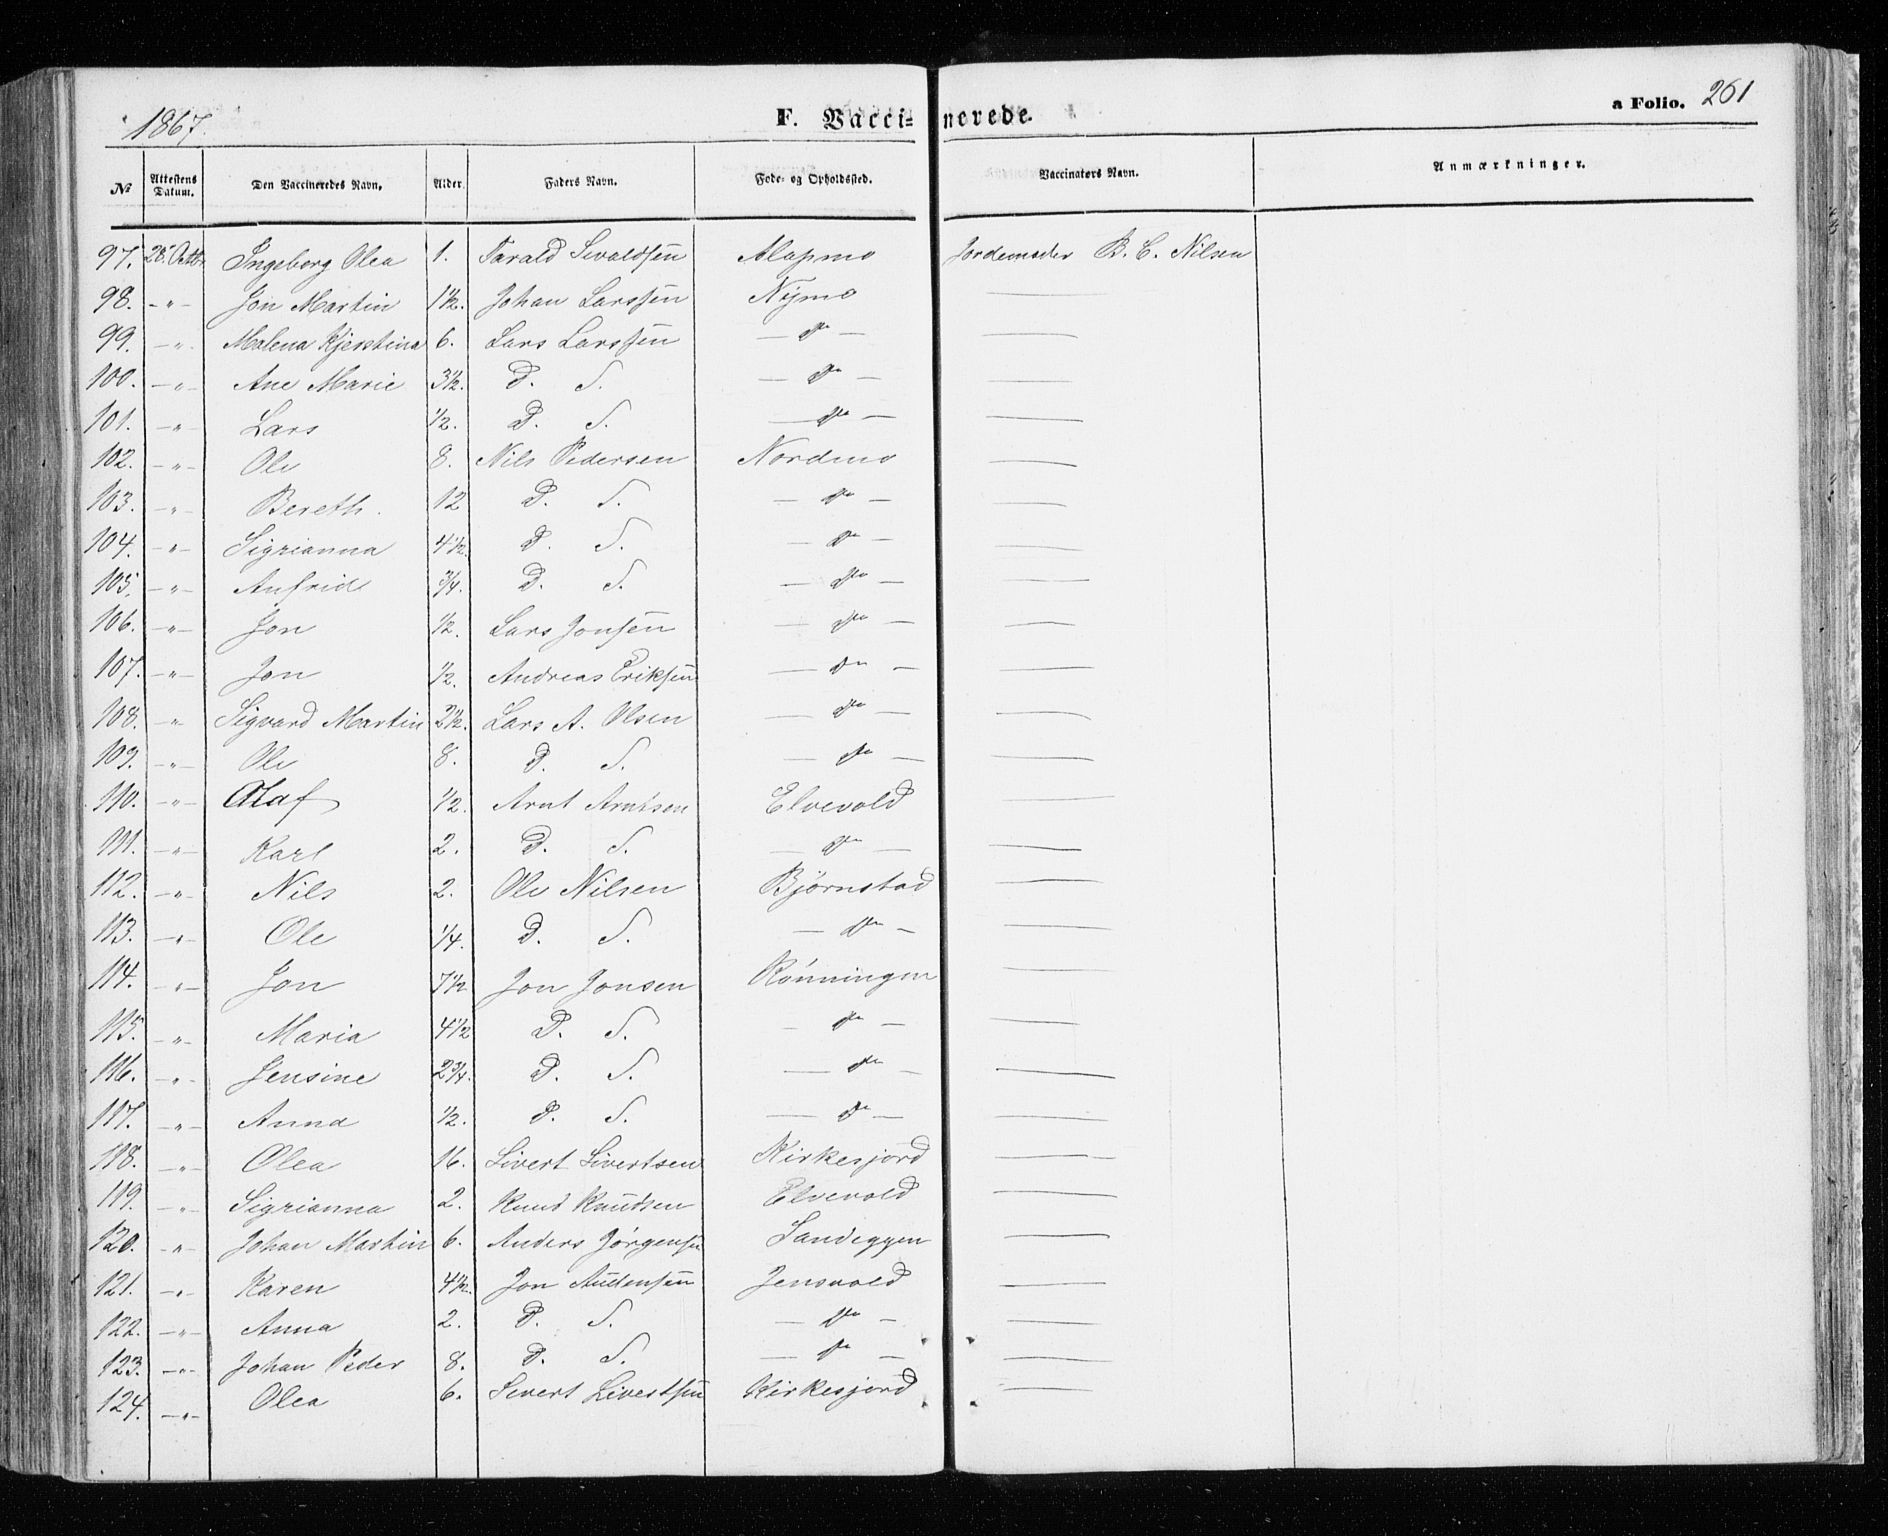 1867. F. Vaccinerede. a Folio. 261
№ Attestens Datum. Den Vaccineredes Navn. Alder. Faders Navn. Føde- og Opholdssted. Vaccinatørs Navn. Anmærkninger.
97. 28. Octbr Ingeborg Olea 1. Tarald Sivaldsen Alapmo Jordemoder B. C. Nilsen
98. -"- Jon Martin 1½. Johan Larssen Nymo —
99. -"- Malena Kjerstina 6. Lars Larssen — do — —
100. -"- Ane Marie 3½. D. S. — do — —
101. -"- Lars ½. D. S. — do — —
102. -"- Ole 8. Nils Pedersen Nordmo —
103. -"- Bereth. 12 D. S. — do — —
104. -"- Sigrianna 4½. D. S. — do — —
105. -"- Anfrid ¾. D. S. — do — —
106. -"- Jon ½. Lars Jonsen — do — —
107. -"- Jon ½. Andreas Eriksen — do — —
108. -"- Sigvard Martin 2½. Lars A. Olsen — do — —
109. -"- Ole 8. D. S. — do — —
110. -"- Olaf ½. Arnt Arntsen Elvevold —
111. -"- Karl 2. D. S. — do — —
112. -"- Nils 2. Ole Nilsen Bjørnstad —
113. -"- Ole ¼. D. S. — do — —
114. -"- Jon 7½ Jon Jonsen Rønningen —
115. -"- Maria 4½ D. S. — do — —
116. -"- Jensine 2¾. D. S. — do — —
117. -"- Anna ½. D. S. — do — —
118. -"- Olea 16. Sivert Sivertsen Kirkesjord —
119. -"- Sigrianna 2. Knud Knudsen Elvevold —
120. -"- Johan Martin 6. Anders Jørgensen Sandeggen —
121. -"- Karen 4½. Jon Audensen Jensvold —
122. -"- Anna 2. D. S. — do — —
123. -"- Johan Peder 8. D. S. — do — —
124. -"- Olea 6. Sivert Sivertsen Kirkesjord —